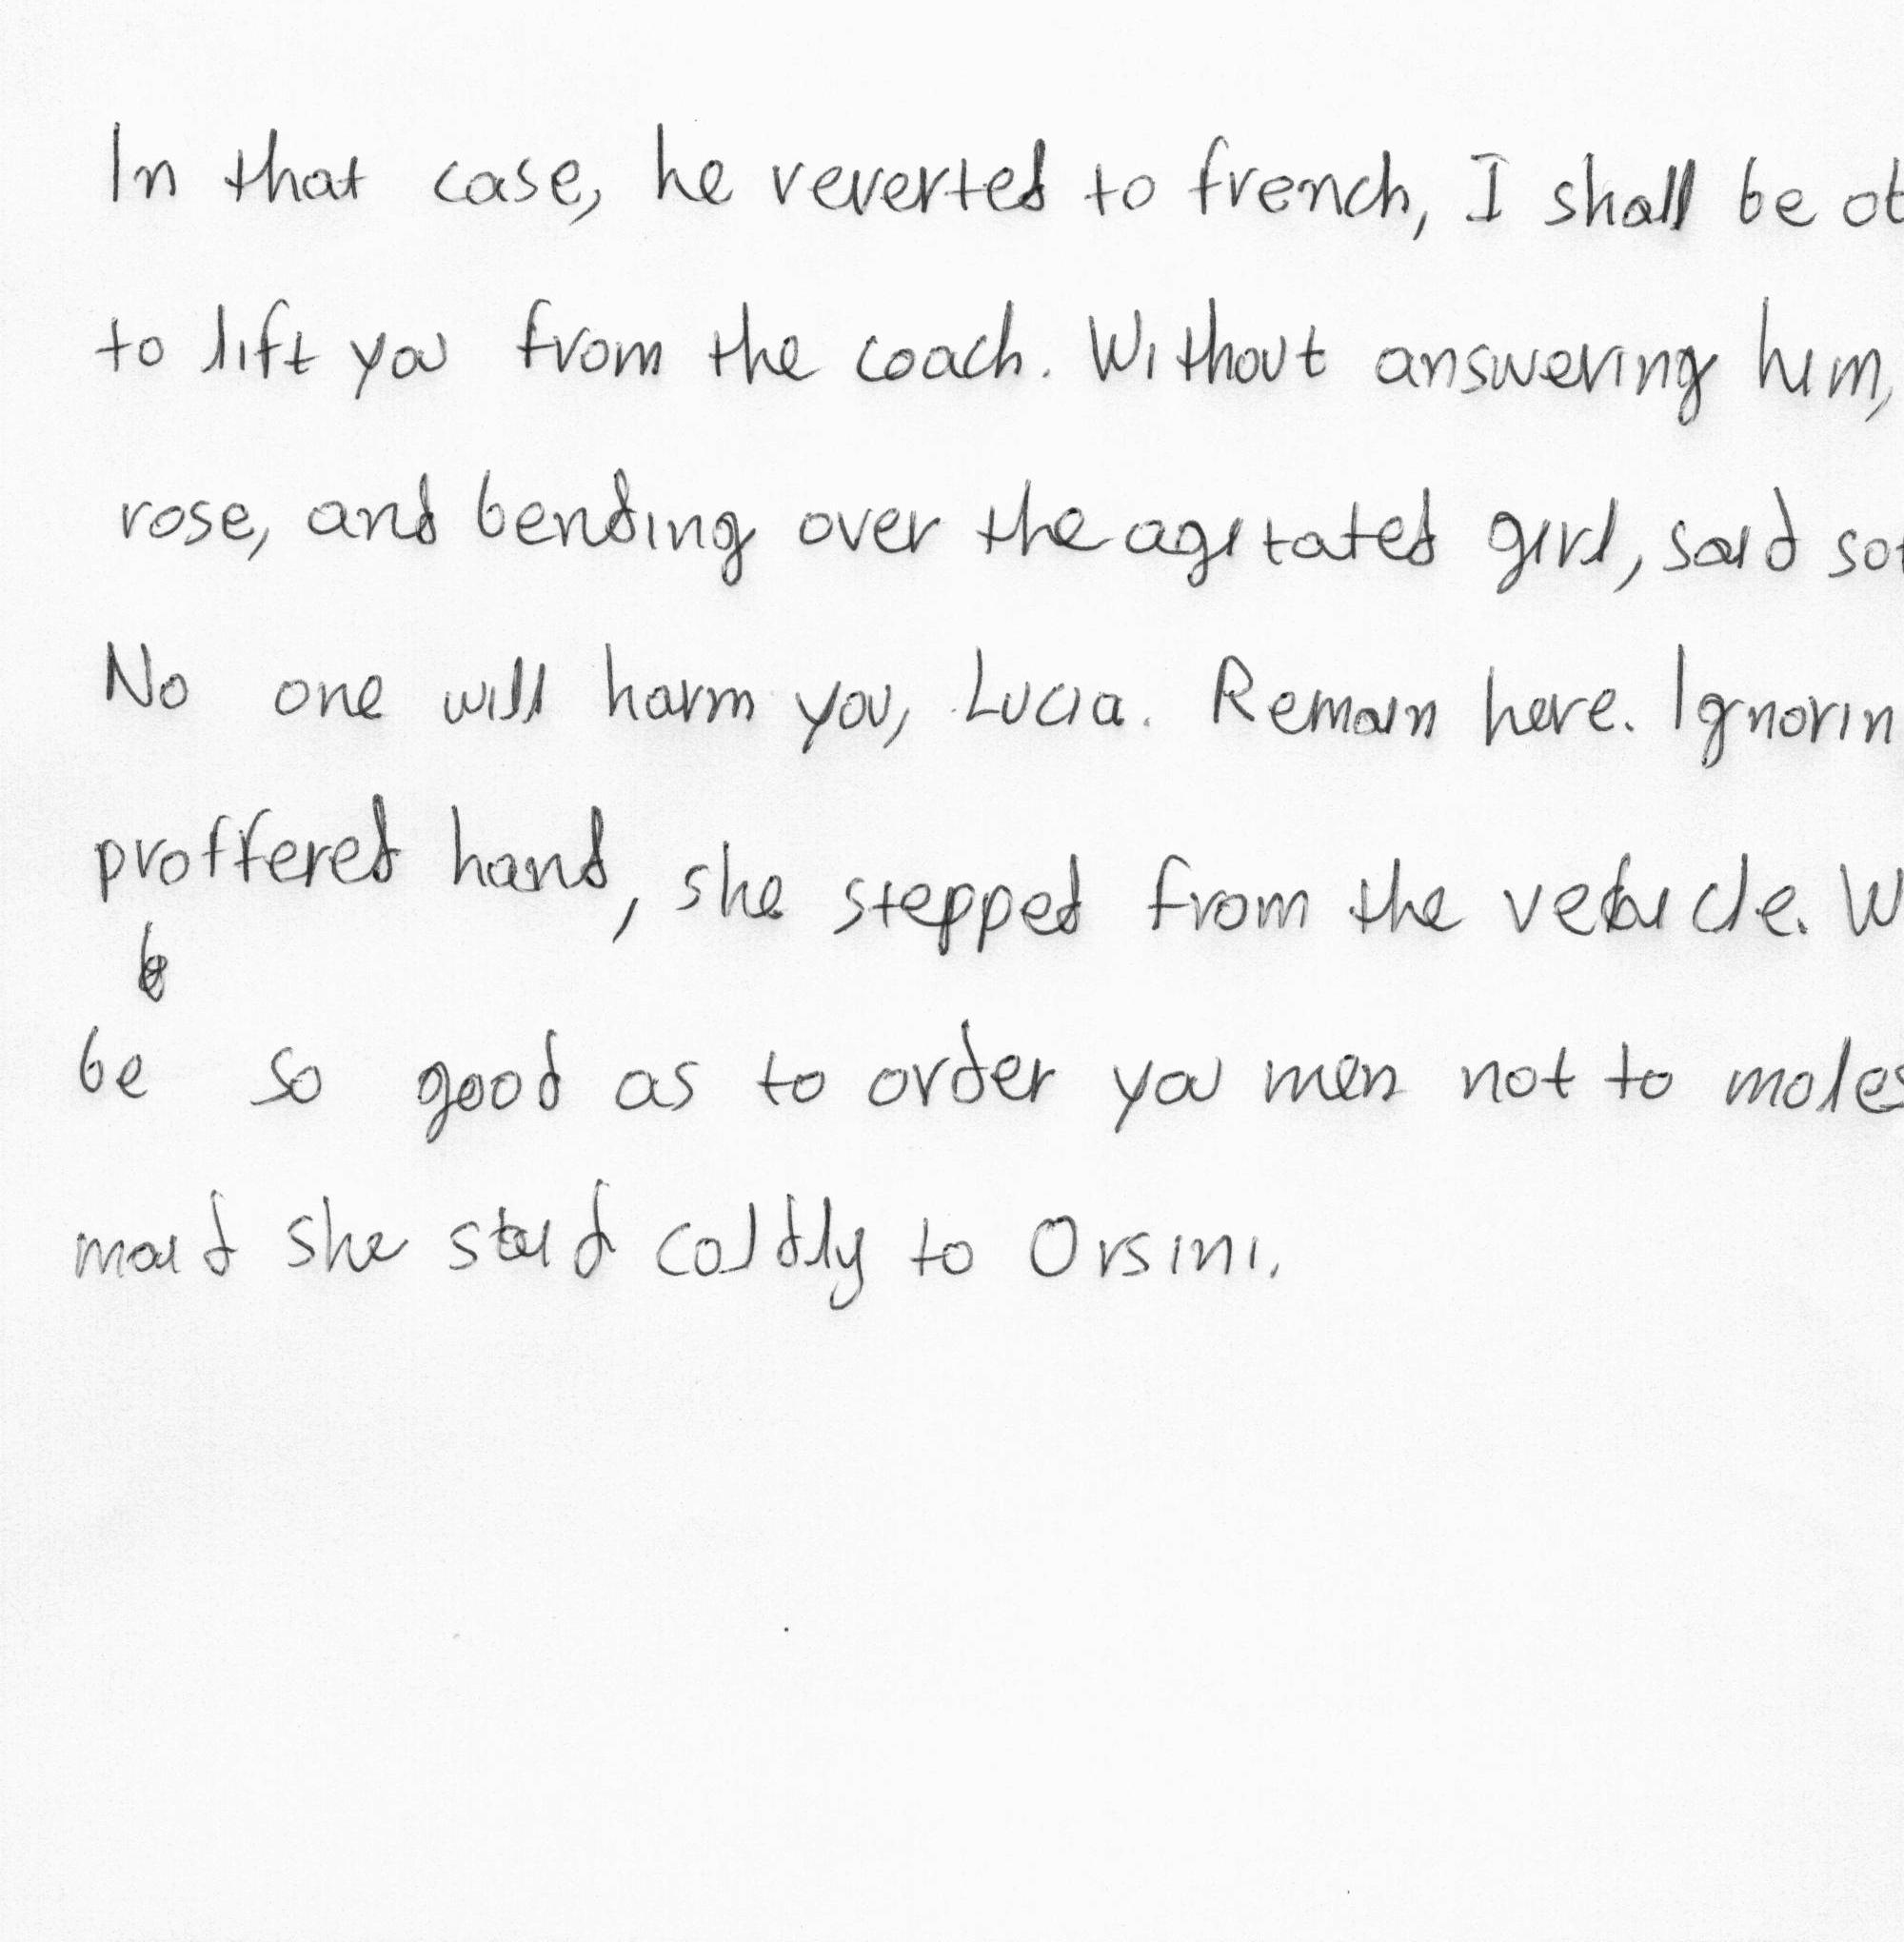 In that case, he reverted to french, I shall be
to lift you from the coach. Without answering him,
rose, and bending over the agitated girl, said
No one will harm you, Lucia. Remain here.
proffered hand, she stepped from the vehicle.
be so good as to order you men not to
maid she said coldly to Orsini.